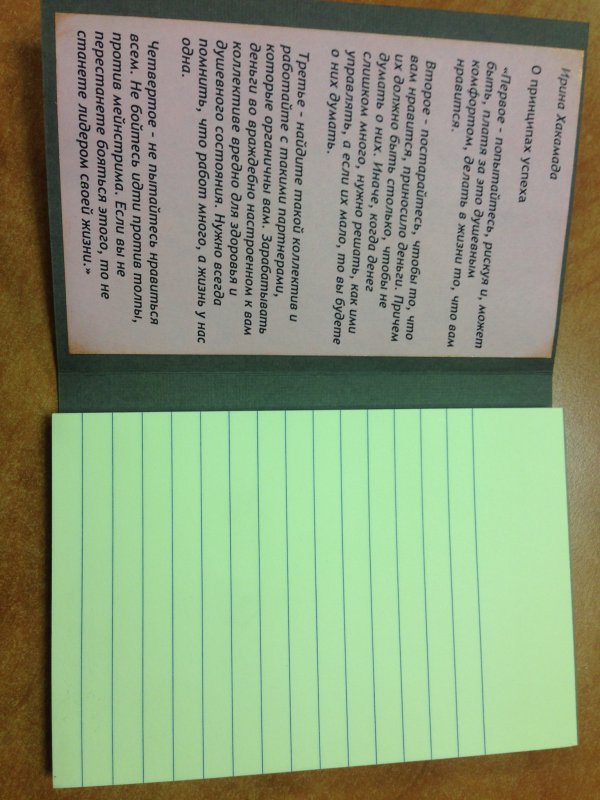 Ирина Хакамада
О принципах успеха
«Первое - попытайтесь, рискуя и, может
быть, платя за это душевным
комфортом, делать в жизни то, что вам
нравится.
Второе - постарайтесь, чтобы то, что
вам нравится, приносило деньги. Причем
их должно быть столько, чтобы не
думать о них. Иначе, когда денег
слишком много, нужно решать, как ими
управлять, а если их мало, то вы будете
о них думать.
Третье - найдите такой коллектив и
работайте с такими партнерами,
которые органичны вам. Зарабатывать
деньги во враждебно настроенном к вам
коллективе вредно для здоровья и
душевного состояния. Нужно всегда
помнить, что работ много, а жизнь у нас
одна.
Четвертое - не пытайтесь нравиться
всем. Не бойтесь идти против толпы,
против мейнстрима. Если вы не
перестанете бояться этого, то не
станете лидером своей жизни.»